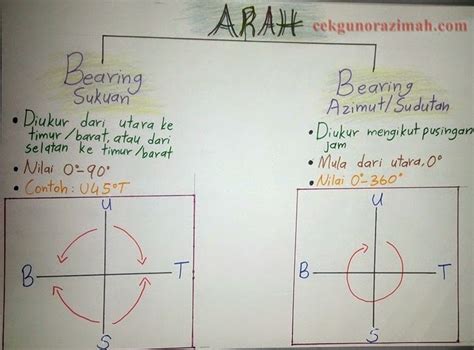 ARAH
cekgunorazimah.com
Bearing
Sukuan
• Diukur dari utara ke
timur/barat, atau dari
selatan ke timur/barat
• Nilai 0°-90°
• Contoh: U45°T
U
B
T
S
Bearing
Azimut/Sudutan
• Diukur mengikut pusingan
jam
• Mula dari utara, 0°
• Nilai 0°-360°
U
B
T
S